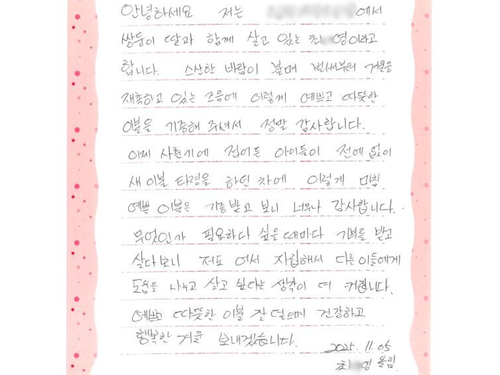 안녕하세요 저는 에서
쌍둥이 딸과 함께 살고 있는 최 영이라고
합니다. 스산한 바람이 불며 벌써부터 겨울을
재촉하고 있는 즈음에 이렇게 예쁘고 따뜻한
이불을 기증해 주셔서 정말 감사합니다.
이제 사춘기에 접어든 아이들이 전에 없이
새 이불 타령을 하던 차에 이렇게 마침
예쁜 이불을 기증 받고 보니 너무나 감사합니다.
무엇인가 필요하다 싶을 때마다 기부를 받고
살다보니 저도 어서 자립해서 다른 이들에게
도움을 나누고 살고 싶다는 생각이 더 커집니다.
예쁘고 따뜻한 이불 잘 덮으며 건강하고
행복한 겨울 보내겠습니다.
2025. 11. 05
최 영 올림.